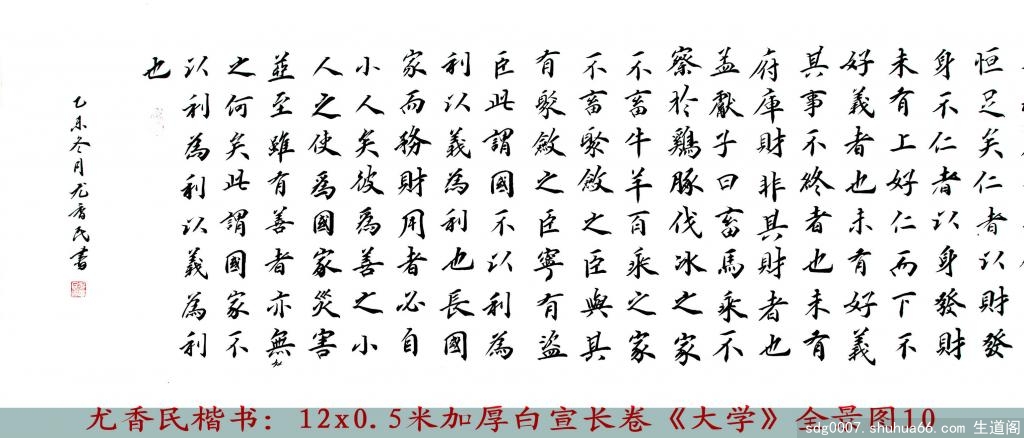 恒足矣仁者以財發
身不仁者以身發財
未有上好仁而下不
好義者也未有好義
其事不終者也未有
府庫財非其財者也
孟獻子曰畜馬乘不
察於鷄豚伐冰之家
不畜牛羊百乘之家
不畜聚斂之臣與其
有聚斂之臣寧有盜
臣此謂國不以利為
利以義為利也長國
家而務財用者必自
小人矣彼為善之小
人之使為國家災害
並至雖有善者亦無
之何矣此謂國家不
以利為利以義為利
也
乙未冬月尤香民書
尤香民楷书：12x0.5米加厚白宣长卷《大学》全景图10
sdg0007.shuhua66.com 生道阁